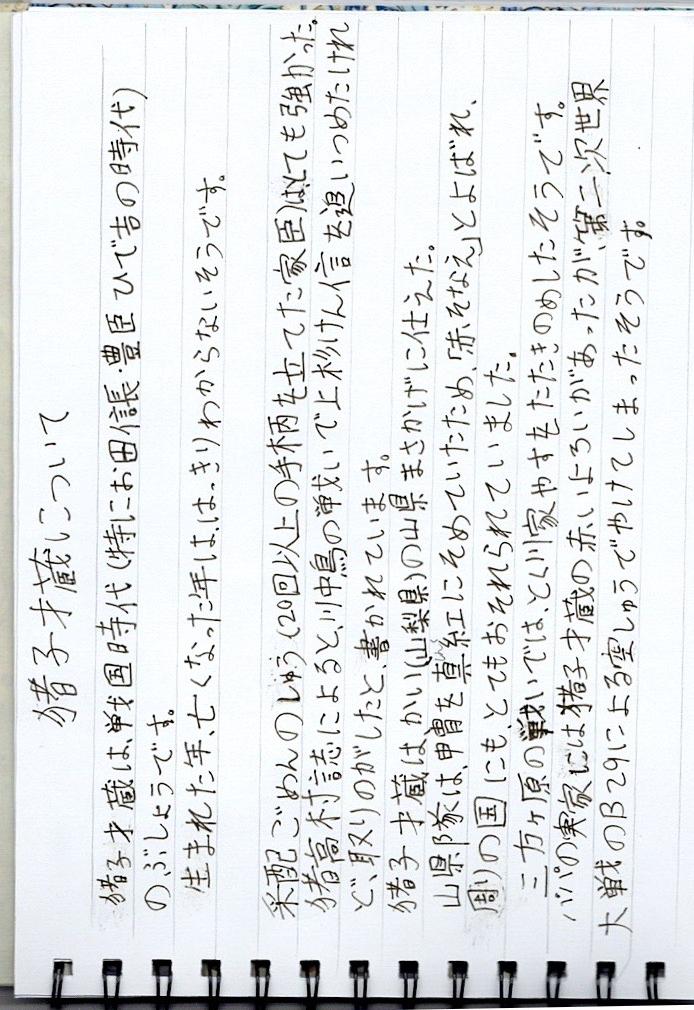 猪子才蔵について
猪子才蔵は、戦国時代(特にお田信長・豊臣ひで吉の時代)
のぶしょうです。
生まれた年、亡くなった年は、はっきりわからないそうです。
采配ごめんのしゅう(20回以上の手柄を立てた家臣)はとても強かった。
猪高村誌によると、川中島の戦いで上杉けん信を追いつめたけれ
ど、取りのがしたと、書かれています。
猪子才蔵はかい(山梨県)の山県まさかげに仕えた。
山県隊は、甲冑を真紅にそめていたため、「赤そなえ」とよばれ、
周りの国にもとてもおそれられていました。
三方ヶ原の戦いでは、とく川家やすをたたきのめしたそうです。
パパの実家には猪子才蔵の赤いよろいがあったが第二次世界
大戦のB29による空しゅうでやけてしまったそうです。